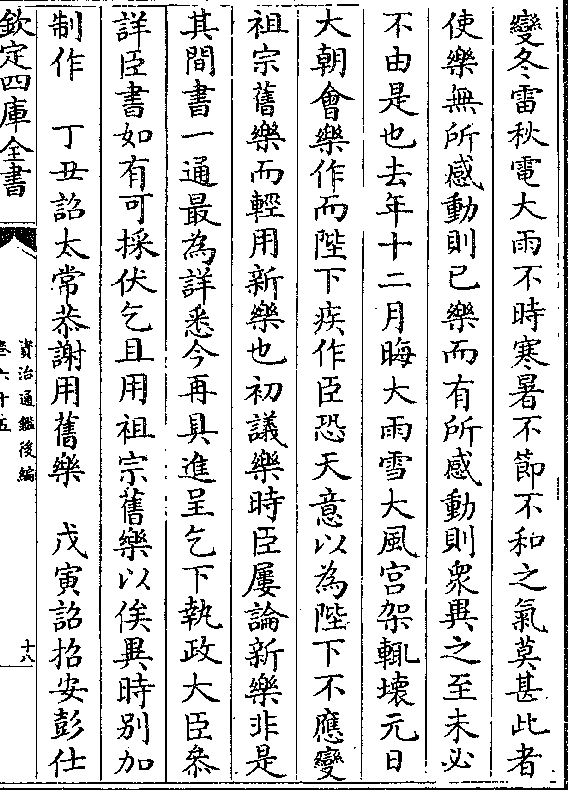 變冬雷秋電大雨不時寒暑不節不和之氣莫甚此者
使樂無所感動則已樂而有所感動則衆異之至未必
不由是也去年十二月晦大雨雪大風宫架輒壞元日
大朝會樂作而陛下疾作臣恐天意以為陛下不應變
祖宗舊樂而輕用新樂也初議樂時臣屢論新樂非是
其間書一通最為詳悉今再具進呈乞下執政大臣叅
詳臣書如有可採伏乞且用祖宗舊樂以俟異時别加
制作　丁丑詔太常恭謝用舊樂　戊寅詔招安彭仕
欽定四庫全書
資治通鑑後編
卷六十五
十八